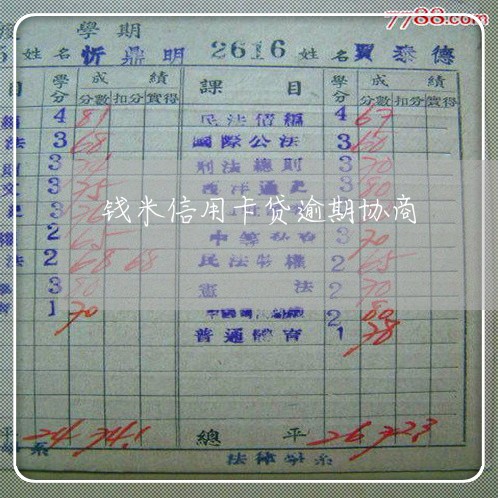 7788.com
學期
姓名 忻鼎明 2616 姓名 賈泰德
目 學分 成績 課目 學分 成績
分數 扣分 實得 分數 扣分 實得
4 81 民法債編 4 67
法 3 68 國際公法 3 60
3 刑法總則 3 70
3 75 西洋通史 3 80
3
钱米信用卡贷逾期协商
2 65 3 70
法 2 68 68 民法物權 2 65
3 80 憲法 2 70
1 70 2 80
普通體育 1 78
平 24 74.1 總平 26 72.3
系 法律學系